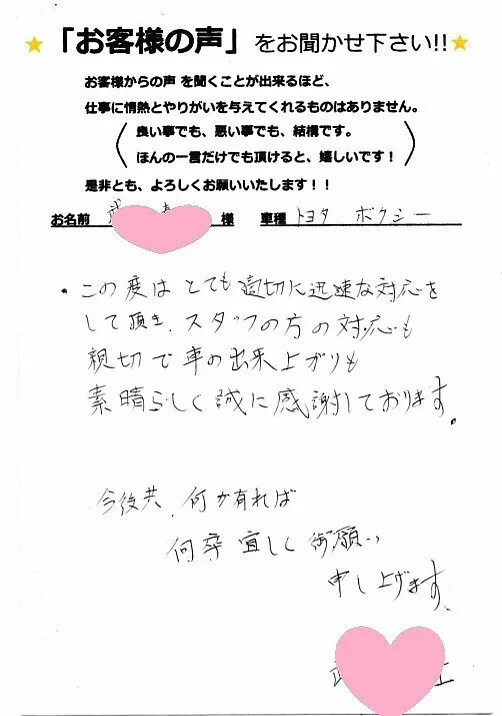 ★「お客様の声」をお聞かせ下さい!!★
お客様からの声 を聞くことが出来るほど、
仕事に情熱とやりがいを与えてくれるものはありません。
良い事でも、悪い事でも、結構です。
ほんの一言だけでも頂けると、嬉しいです！
是非とも、よろしくお願いいたします！！
お名前 様 車種 トヨタ ボクシー
・この度は とても 適切に迅速な対応を
して頂き、スタッフの方の対応も
親切で車の出来上がりも
素晴らしく誠に感謝しております。
今後共、何か有れば
何卒宜しく御願い
申し上げます、